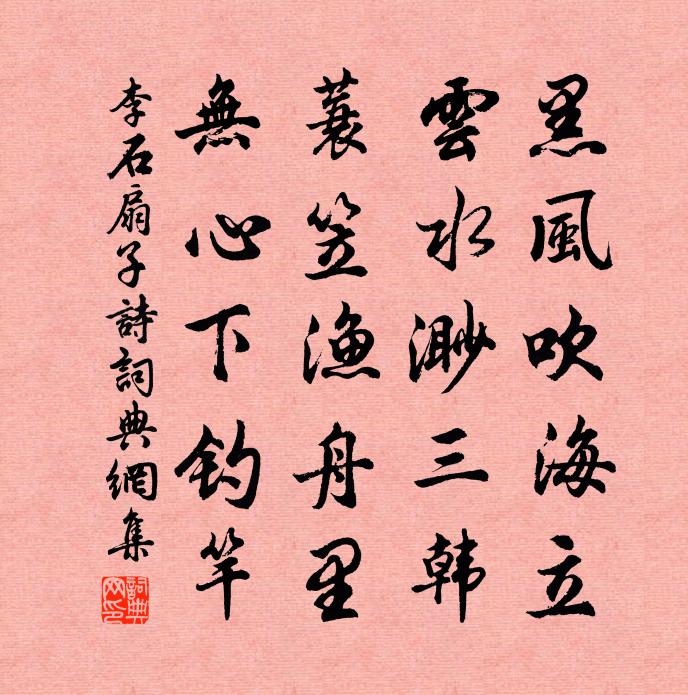 黑風吹海立
雲水渺三韩
蓑笠渔舟里
無心下釣竿
李石扇子詩詞典網集
詞典網印